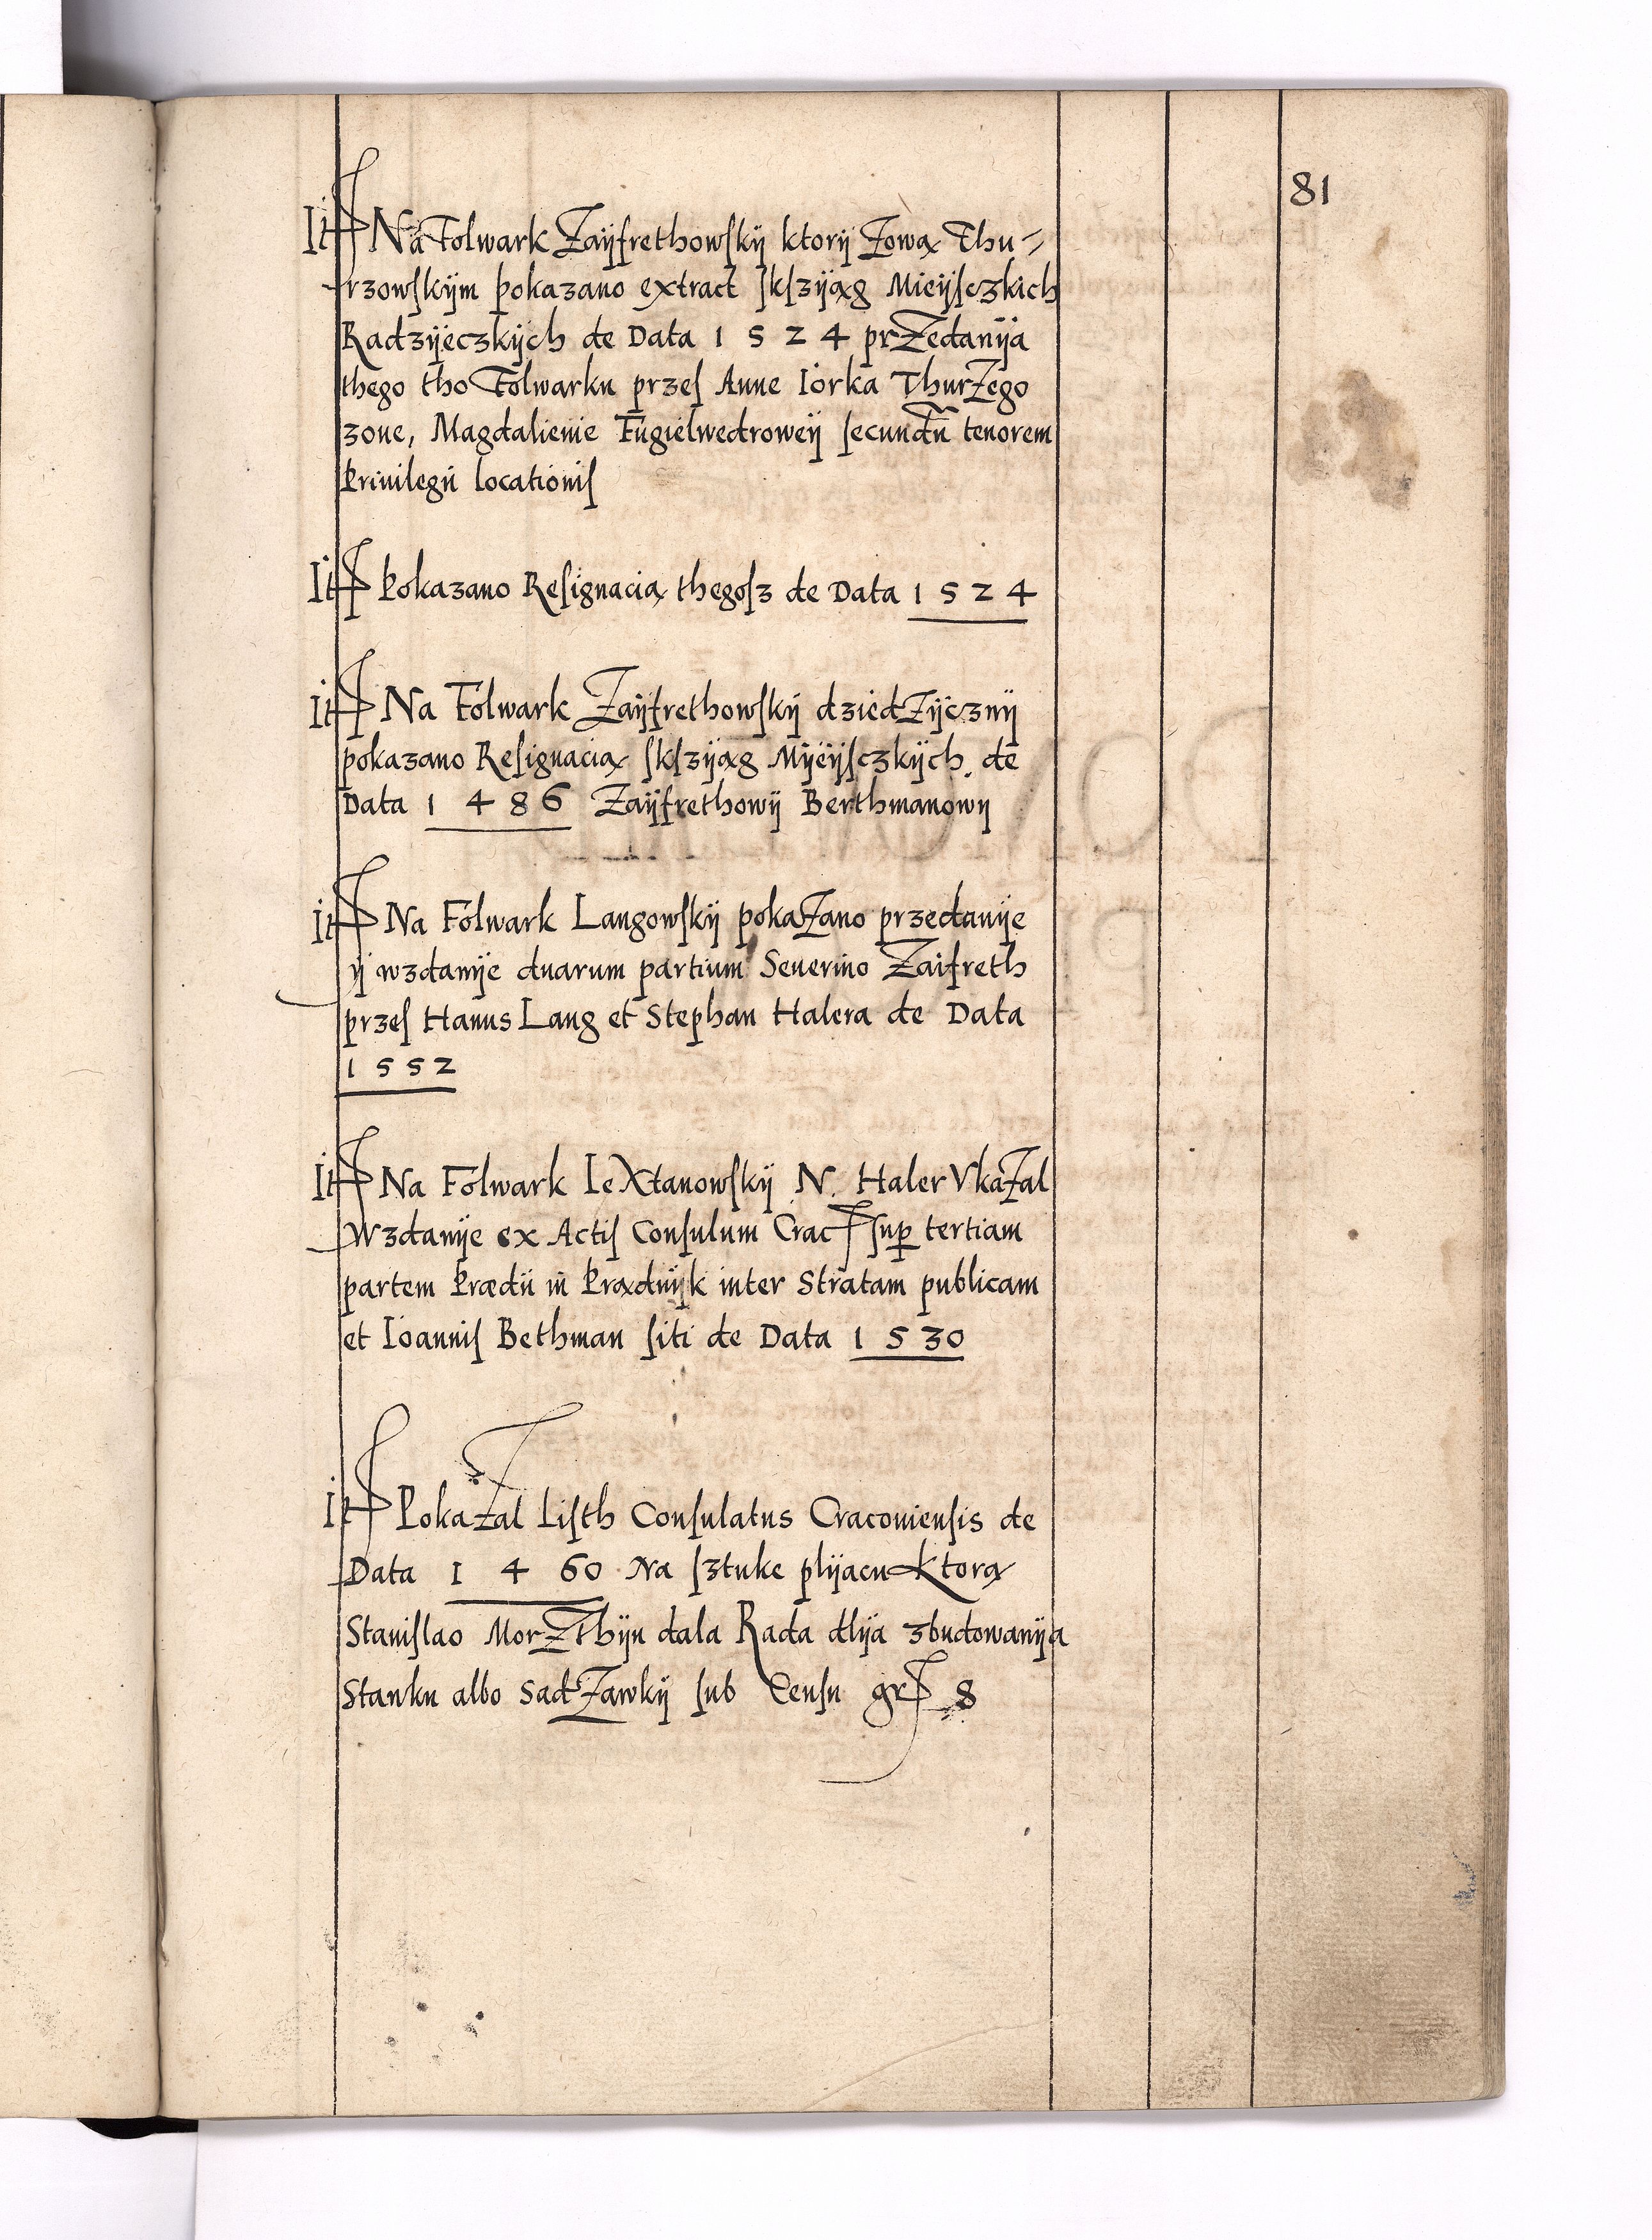 81
It Na Folwark Zaÿfrethowſkÿ ktorÿ Zową Thu-
rzowſkÿm pokazano extract ſkſzÿąg Mieÿſczkich
Radzÿeczkÿch de Data 1 5 2 4 przedanÿa
thego tho Folwarku przeſ Anne Iorka Thurzego
zone, Magdalienie Fugielwedroweÿ ſecundũ tenorem
Priuilegii locationiſ
It Pokazano Reſignacią thegoſz de Data 1 5 2 4
It Na Folwark Zaÿfrethowſkÿ dziedzÿcznÿ
pokazano Reſignacią ſkſzÿąg Mÿeÿſczkÿch de
Data 1 4 8 6 Zaÿfrethowÿ Berthmanowÿ
It Na Folwark Langowſkÿ pokazano przedanÿe
ÿ wzdanÿe duarum partium Seuerino Zaifreth
przeſ Hanus Lang et Stephan Halera de Data
1 5 5 2
It Na Folwark Iextanowſkÿ N. Haler Vkazal
Wzdanÿe ex Actiſ Conſulum Crac ſup tertiam
partem Prædii in Prądnÿk inter Stratam publicam
et Ioanniſ Bethman ſiti de Data 1 5 30
It Pokazal Liſth Conſulatus Cracouienſis de
Data 1 4 60 Na ſztuke plÿacu Ktorą
Staniſlao Morzthÿn dala Rada dlÿa zbudowanÿa
Stanku albo Sadzawkÿ ſub Cenſu gr 8